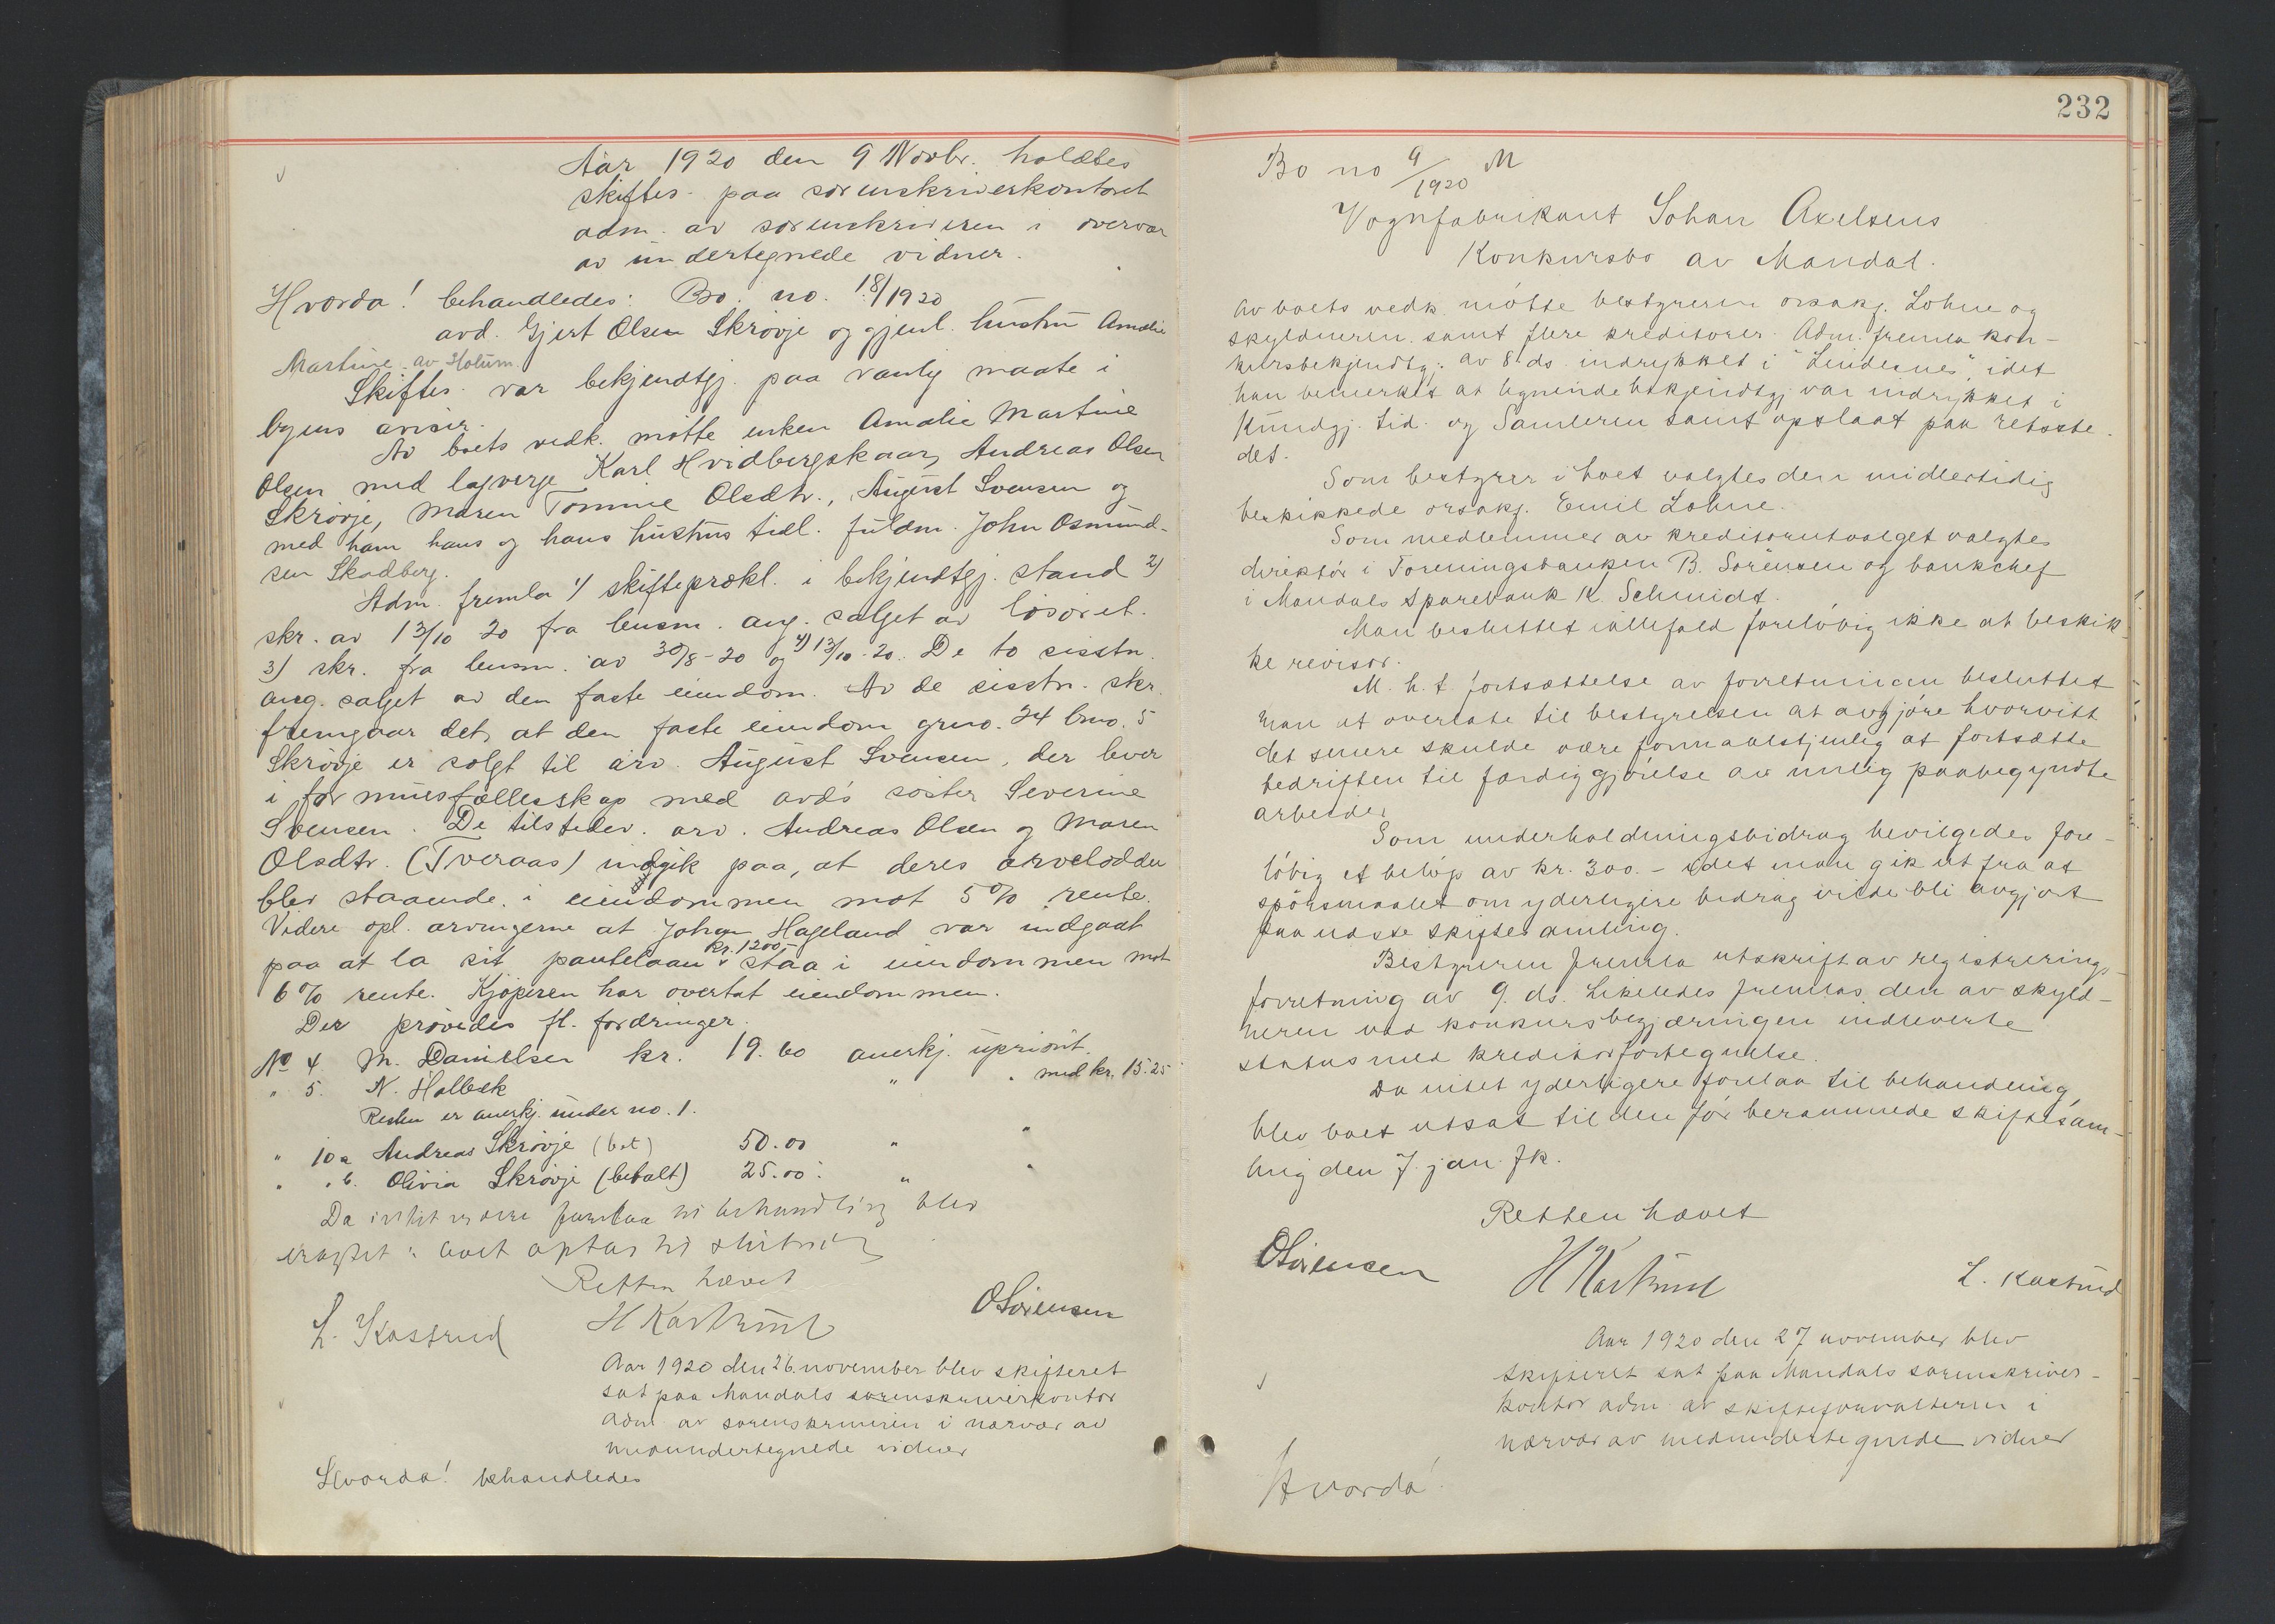 Aar 1920 den 9 Novbr. holdtes
skiftes. paa sorenskriverkontoret
adm. av sorenskriveren i overvær
av undertegnede vidner.
Hvorda! behandledes: Bo. no. 18/1920
avd. Gjert Olsen Skrøvje og gjenl. hustru Amalie
Martine av Holum.
Skiftes. var bekjendtgj. paa vanlig maate i
byens aviser.
Av boets vedk. møtte enken Amalie Martine
Olsen med lagverge Karl Hvidbergskaar, Andreas Olsen
Skrøvje, Maren Tomine Olsdtr., August Svensen og
med ham hans og hans hustrus tidl. fuldm. John Osmund-
sen Skadberg.
Adm. fremla 1) skifteprokl. i bekjendtgj. stand 2)
skr. av 13/10 20 fra lensm. ang. salget av løsøret.
3) skr. fra lensm. av 30/8-20 og 4) 13/10-20. De to sisstn.
ang. salget av den faste eiendom. Av de sisstn. skr.
fremgaar det, at den faste eiendom grno. 24 brno. 5
Skrøvje er solgt til arv. August Svensen, der lever
i formuesfællesskap med avd's søster Severine
Svensen. De tilstedev. arv. Andreas Olsen og Maren
Olsdtr. (Tveraas) indgik paa, at deres arvelodder
blev staaende i eiendommen mot 5% rente.
Videre opl. arvingerne at Johan Hageland var indgaat
paa at la sit pantelaan kr. 1200,- staa i eiendommen mot
6% rente. Kjøperen har overtat eiendommen.
Der prøvedes fl. fordringer.
No 4. M. Danielsen kr. 19.60 anerkj. uprioit.
" 5. N. Holbek " " med kr. 15.25
Resten er anerkj. under no. 1.
" 10 a Andreas Skrøvje (bet) 50.00 " "
" " b. Olivia Skrøvje (betalt) 25.00 " "
Da intet videre forelaa til behandling blev
eragtet: boet optas til slutning
Retten hævet
L. Kastrud H Kastrud OSørensen
Aar 1920 den 26. november blev skifteret
sat paa Mandals sorenskriverkontor
adm. av sorenskriveren i nærvær av
medundertegnede vidner
Hvorda! behandledes
232
Bo no 9/1920 M
Vognfabrikant Johan Axelsens
Konkursbo av Mandal.
Av boets vedk. møtte bestyreren orsakf. Lohne og
skyldneren samt flere kreditorer. Adm. fremla kon-
kursbekjendtgj. av 8. ds. indrykket i "Lindesnes", idet
han bemerket at lignende bekjendtgj var indrykket i
Kundgj. tid. og Samleren samt opslaat paa retsste-
det.
Som bestyrer i boet valgtes den midlertidig
beskikkede orsakf. Emil Lohne.
Som medlemmer av kreditorutvalget valgtes
direktør i Foreningsbanken B. Sørensen og bankchef
i Mandals Sparebank K. Schmidt.
Man besluttet iallefald foreløbig ikke at beskik-
ke revisor.
M. h. t fortsættelse av forretningen besluttet
man at overlate til bestyrelsen at avgjøre hvorvitt
det senere skulde være formaalstjenlig at fortsætte
bedriften til færdiggjørelse av mulig paabegyndte
arbeider
Som underholdningsbidrag bevilgedes fore-
løbig et beløp av kr. 300.- idet man gik ut fra at
spørsmaalet om yderligere bidrag vilde bli avgjort
paa næste skiftesamling.
Bestyreren fremla utskrift av registrerings-
forretning av 9. ds. Likeledes fremlas den av skyld-
neren ved konkursbegjæringen indleverte
status med kreditorfortegnelse.
Da intet yderligere forelaa til behandling,
blev boet utsat til den før berammede skiftesam-
ling den 7. jan. fk.
Retten hævet
OSørensen H Kastrud L. Kastrud
Aar 1920 den 27 november blev
skifteret sat paa Mandals sorenskriver-
kontor adm. av skifteforvalteren i
nærvær av medundertegnede vidner
Hvorda!